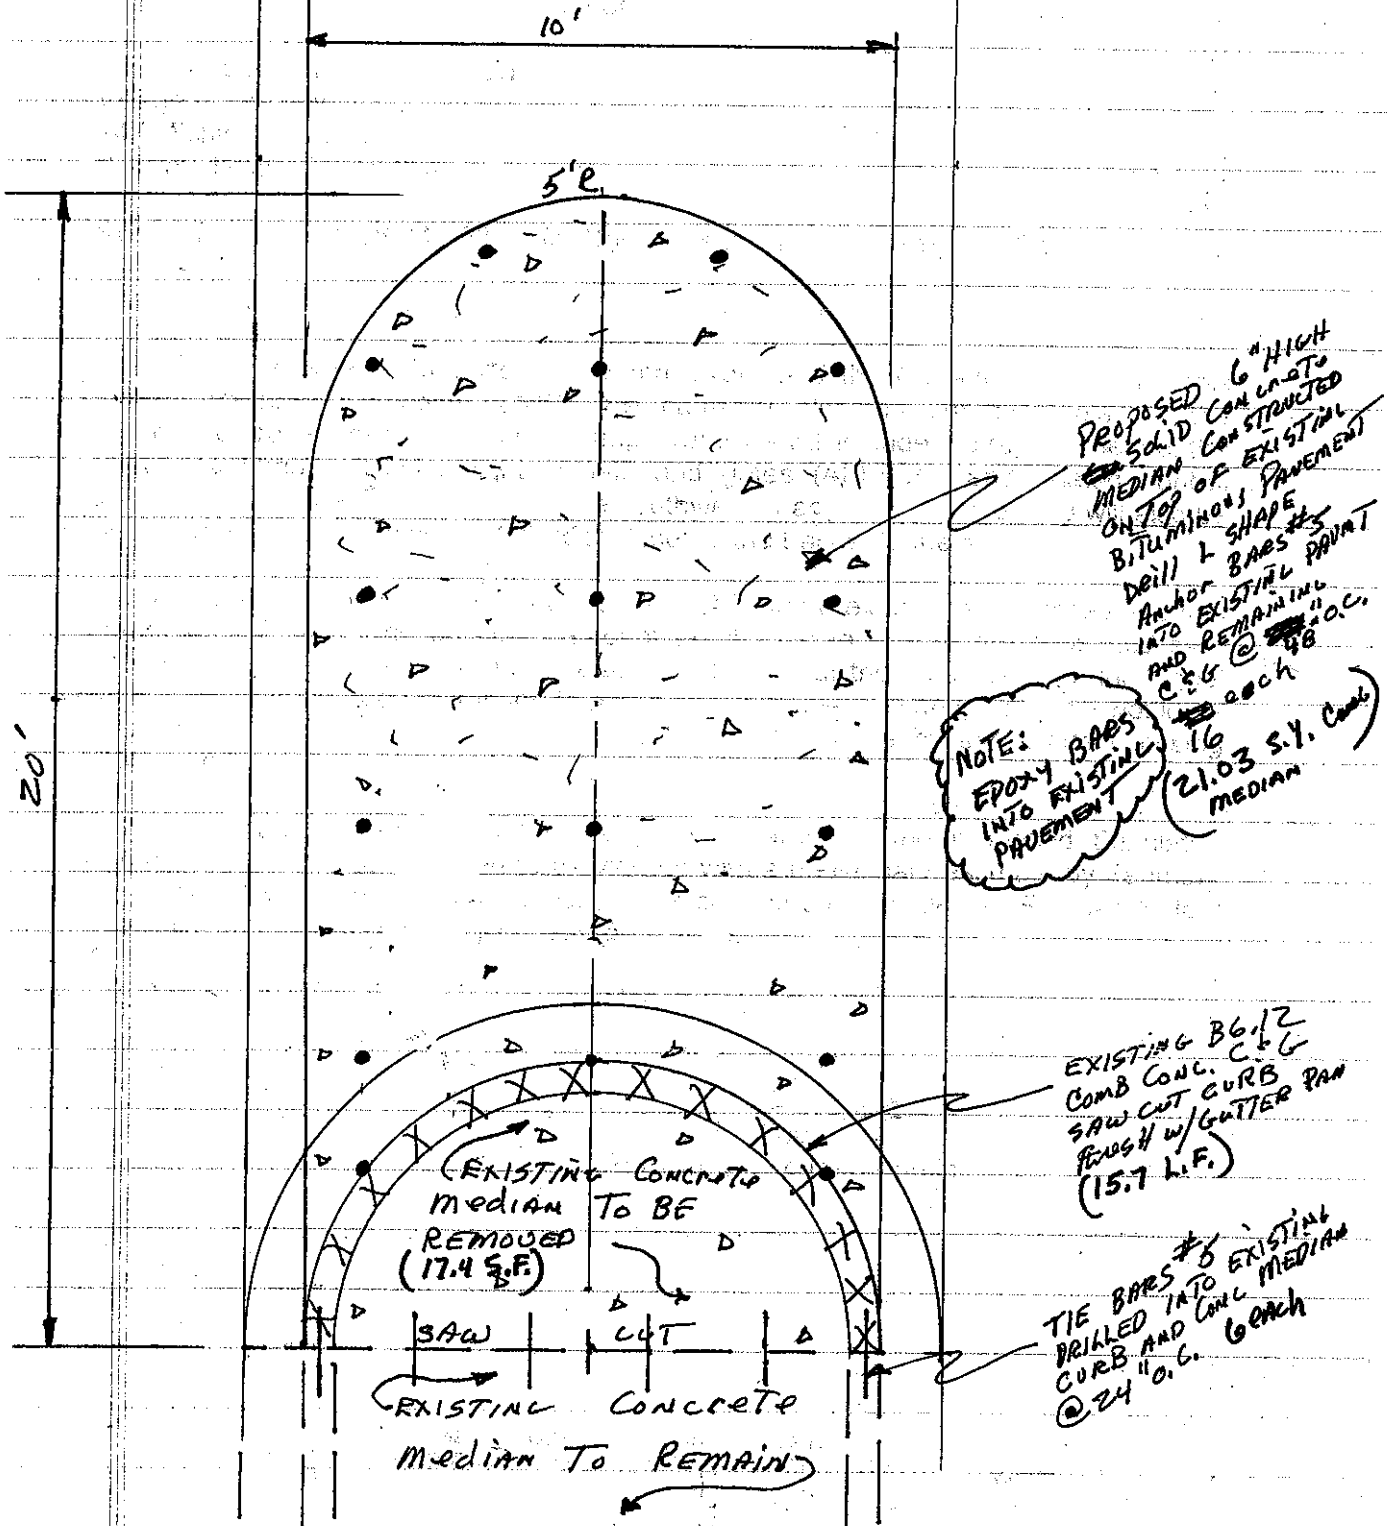 10'
5'R
20'
PROPOSED 6" HIGH
SOLID CONCRETE
MEDIAN CONSTRUCTED
ON TOP OF EXISTING
BITUMINOUS PAVEMENT
DRILL L SHAPE
ANCHOR BARS #5
INTO EXISTING PAVMT
AND REMAINING
C&G @ 48" O.C.
16 each
(21.03 S.Y. Conc
MEDIAN)
NOTE:
EPOXY BARS
INTO EXISTING
PAVEMENT
EXISTING B6.12
COMB CONC. C&G
SAW CUT CURB
FLUSH W/GUTTER PAN
(15.7 L.F.)
EXISTING CONCRETE
MEDIAN TO BE
REMOVED
(17.4 S.F.)
TIE BARS
DRILLED INTO EXISTING
CURB AND CONC MEDIAN
@ 24" O.C. 6 each
SAW CUT
EXISTING CONCRETE
MEDIAN TO REMAIN